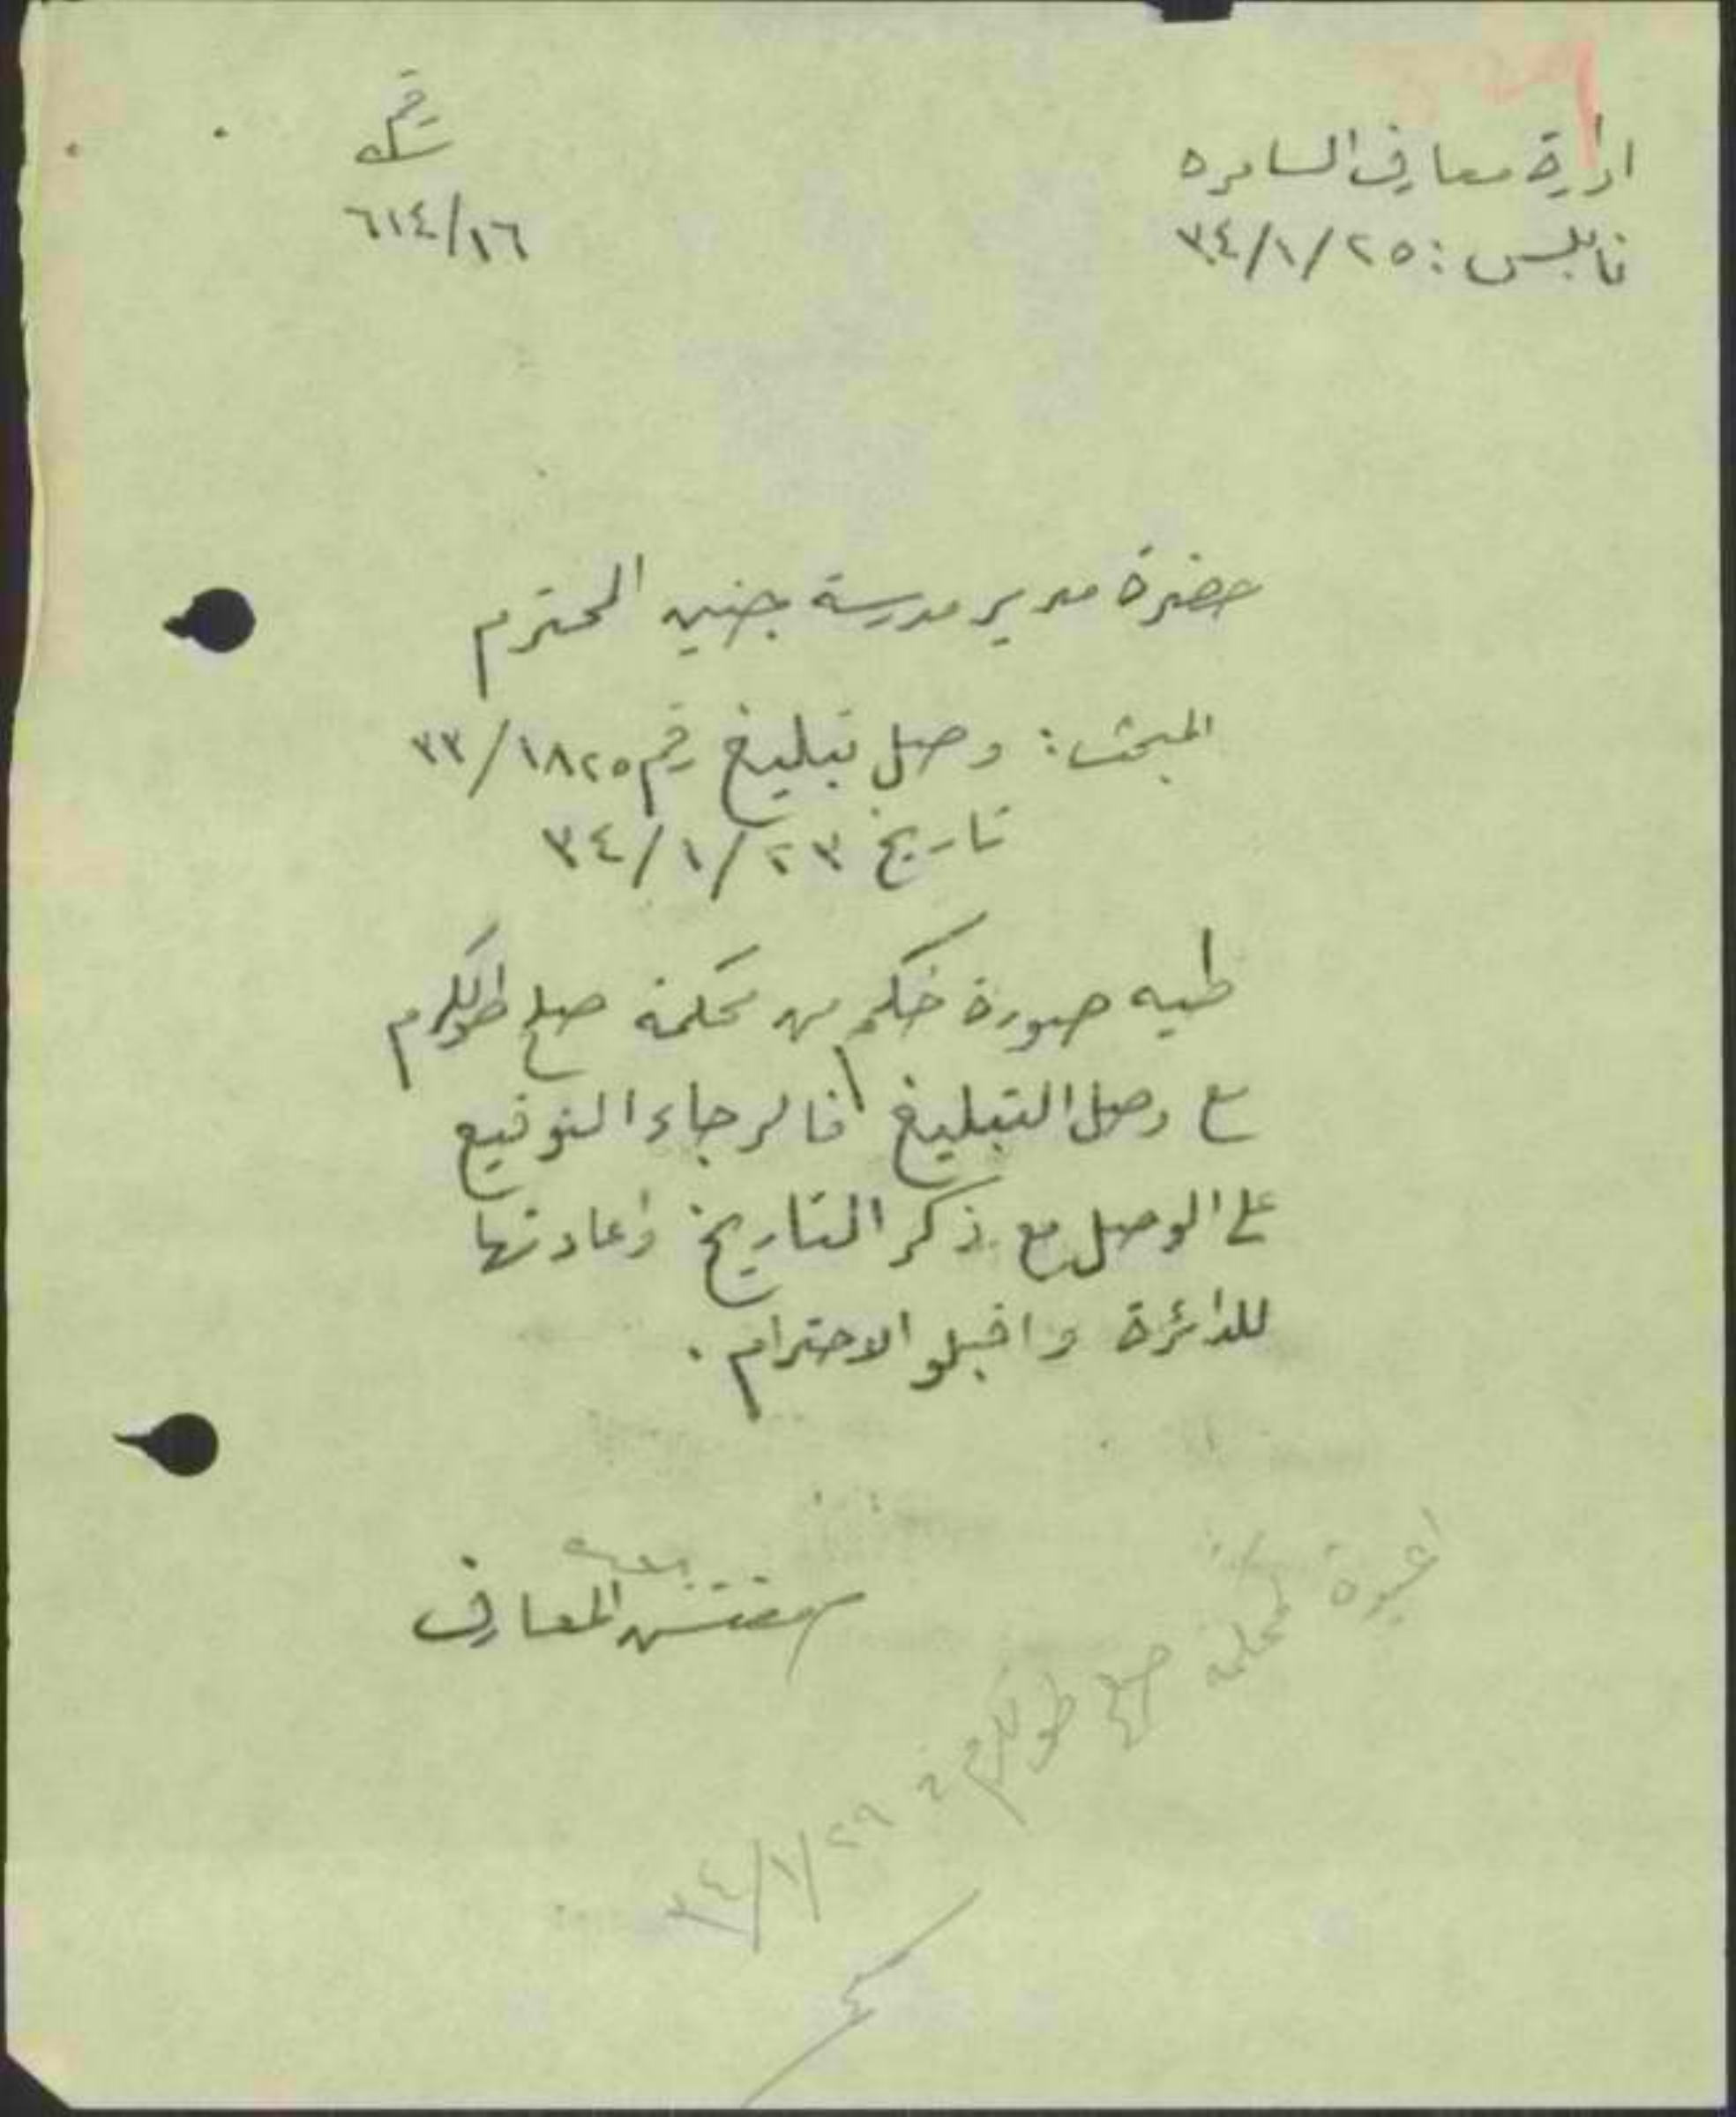 ادارة معارف السامره
نابلس: ٢٥/١/٣٤
رقم
٦١٤/١٦
حضرة مدير مدرسة جنين المحترم
المبحث: وصل تبليغ رقم ١٨٢٥/٣٣
تاريخ ٢٣/١/٣٤
طيه صورة حكم من محكمة صلح طولكرم
مع وصل التبليغ فالرجاء التوقيع
على الوصل مع ذكر التاريخ واعادتها
للدائرة واقبلو الاحترام.
مفتش المعارف
اعيدة لمحكمة صلح طولكرم في ٢٩/١/٣٤